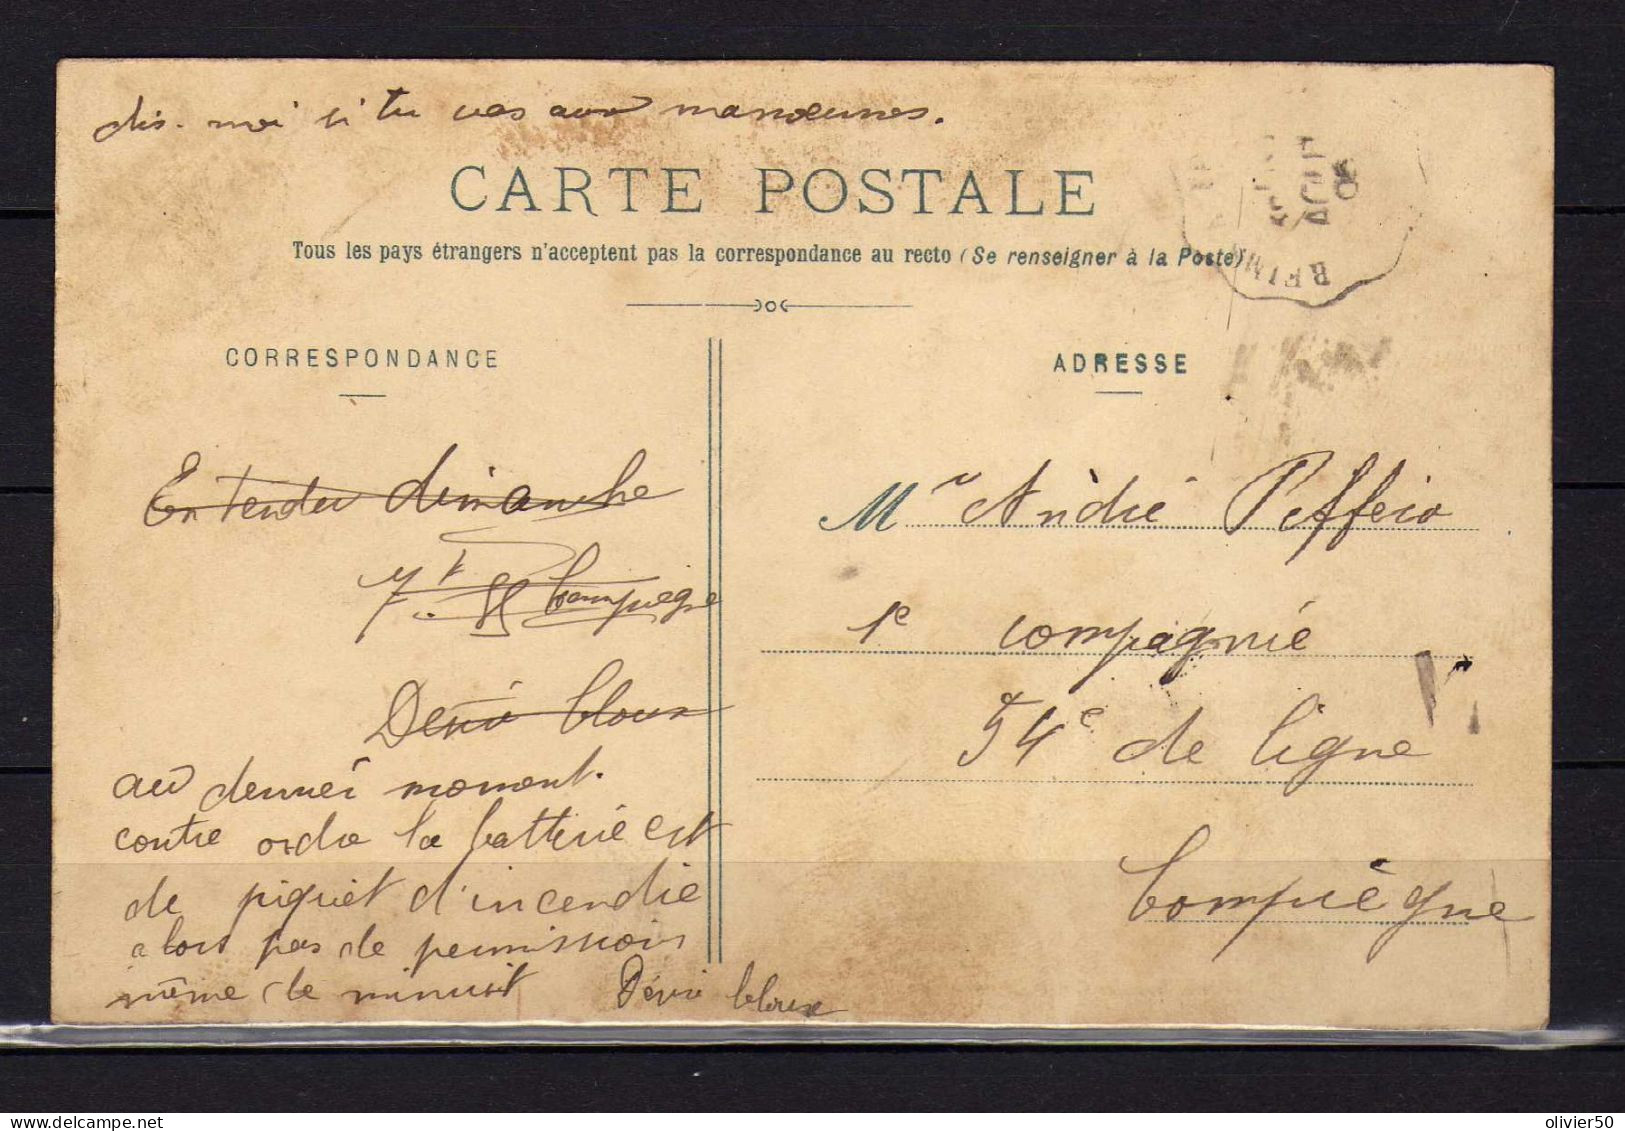 dis-moi si tu vas aux manœuvres.
CARTE POSTALE
Tous les pays étrangers n'acceptent pas la correspondance au recto (Se renseigner à la Poste)
REIM
AOUT
08
CORRESPONDANCE
ADRESSE
Entendu dimanche
Compiègne
Déviò Cloux
au dernier moment.
contre ordre la batterie est
de piquet d'incendie
alors pas de permission
même de minuit
Cloux
Mr André
1e compagnie
54e de ligne
Compiègne
olivier50